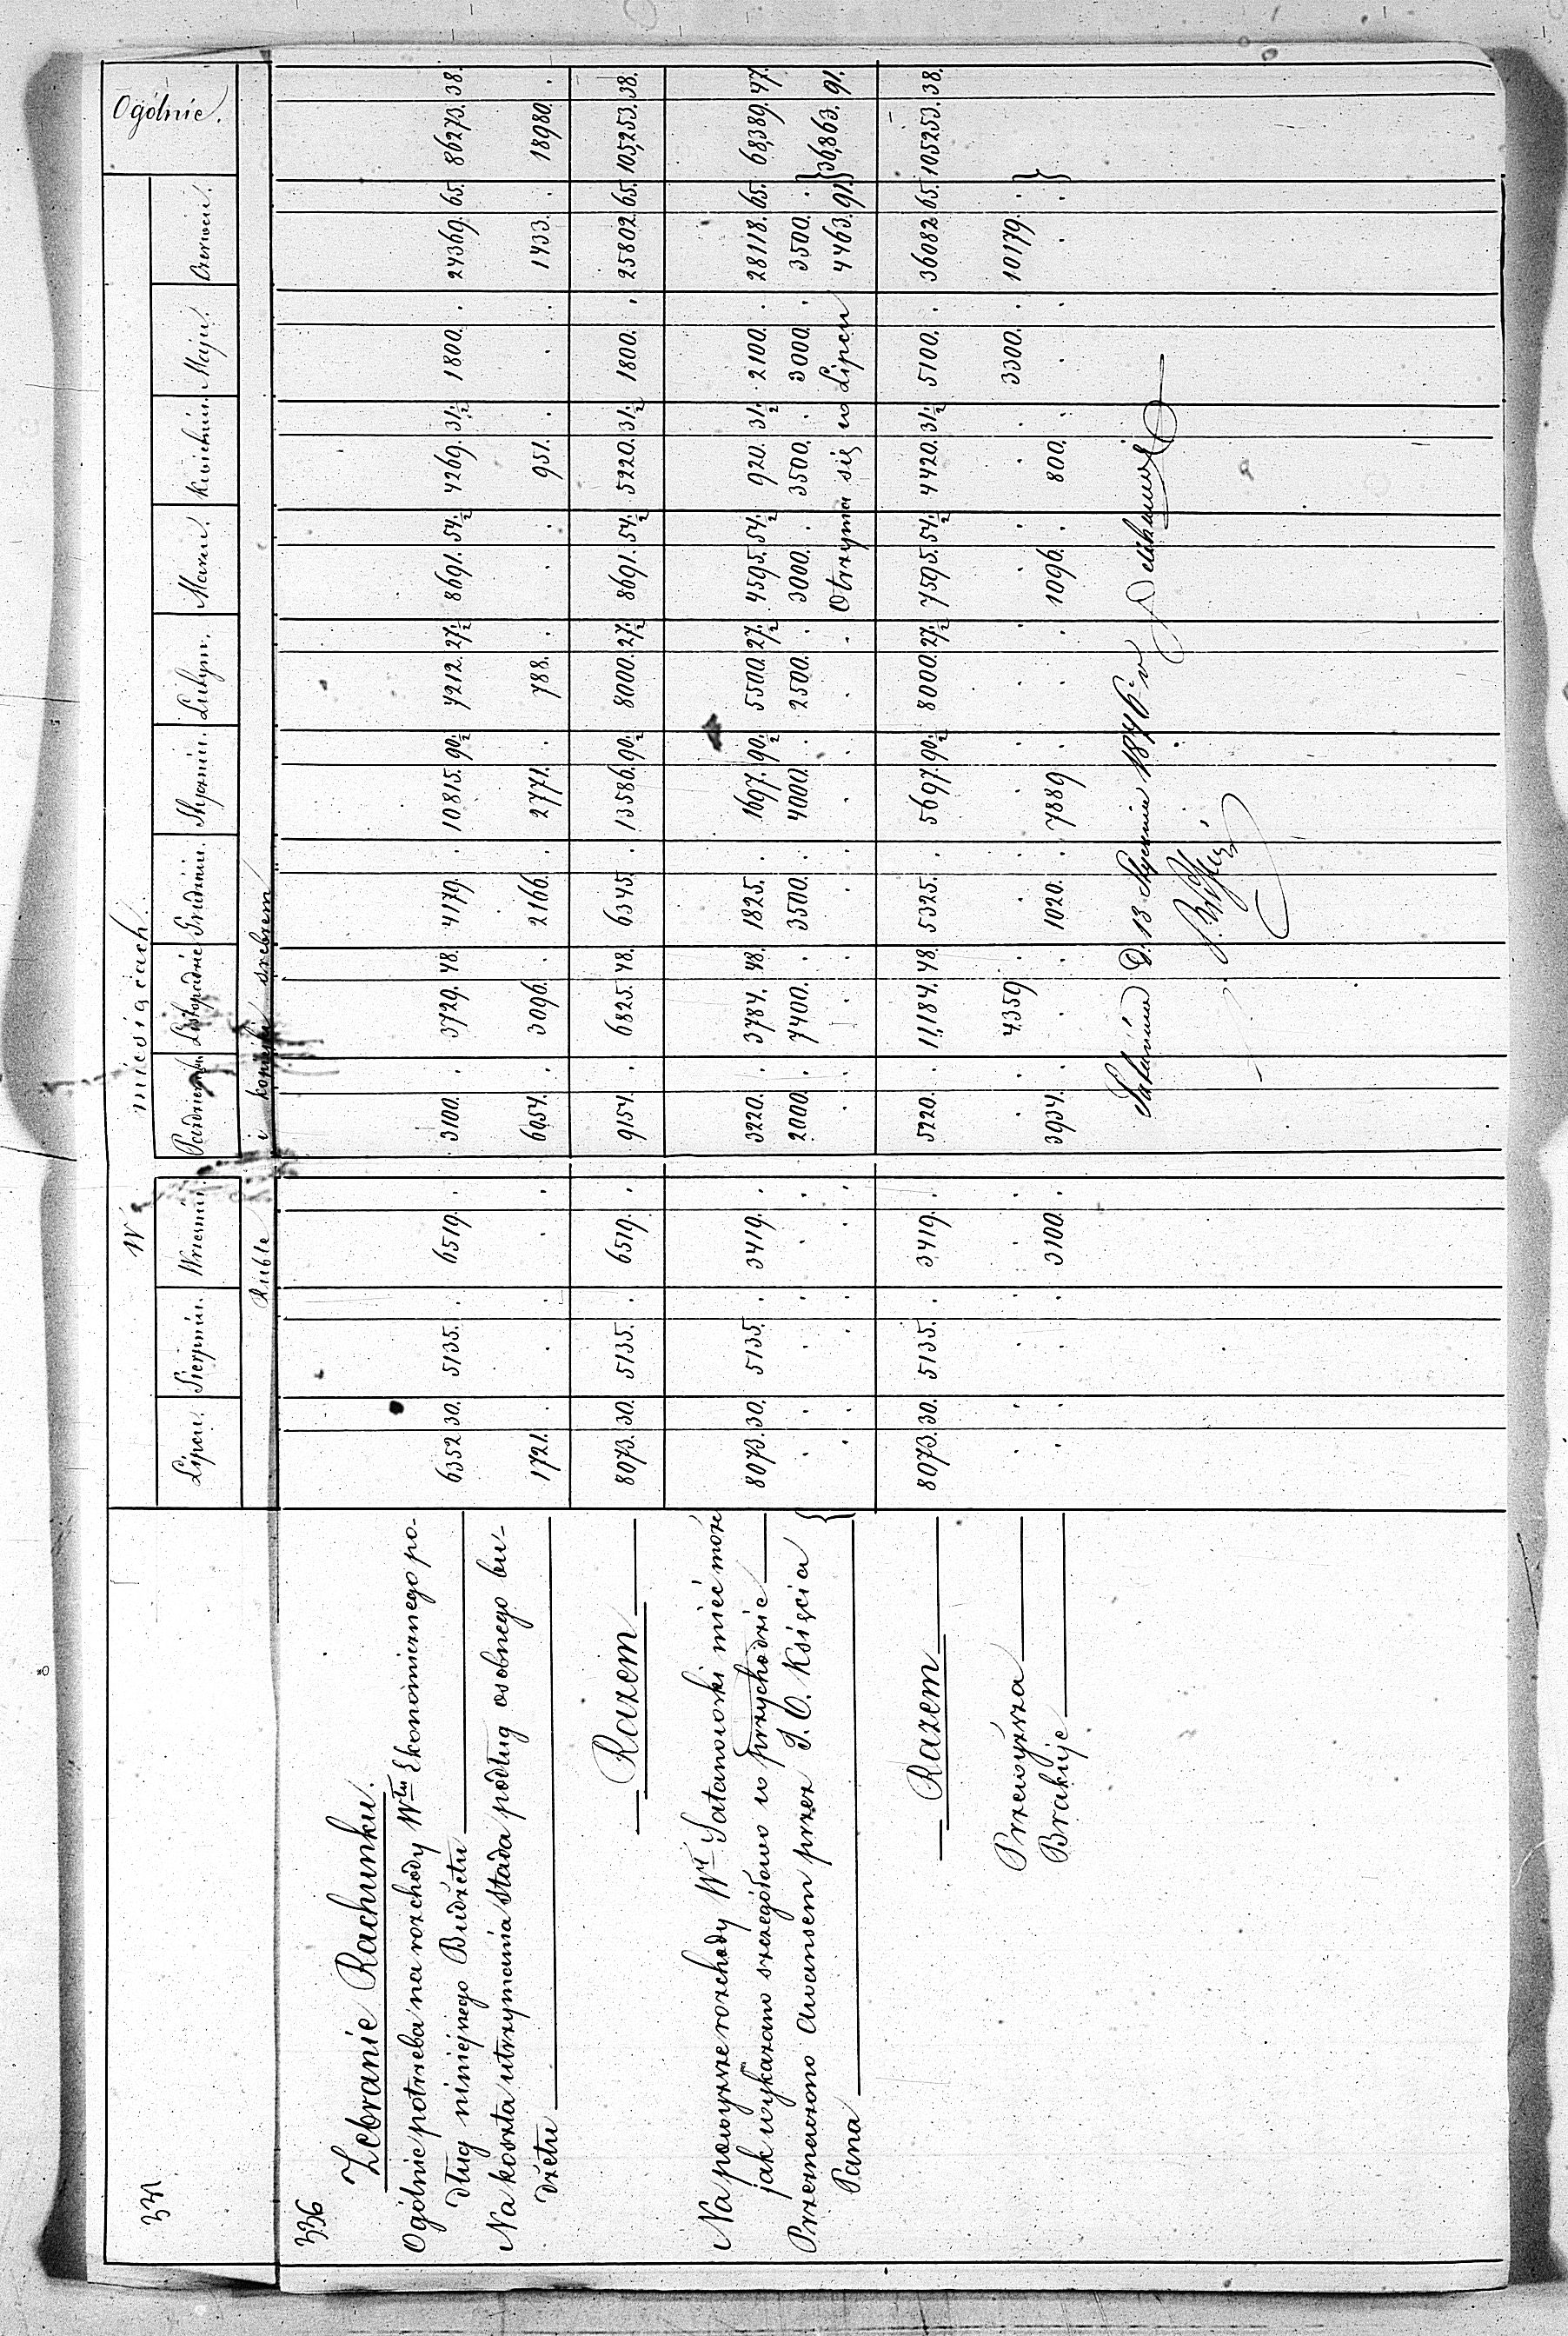 331
W miesiącach.
Ogólnie.
Lipcu. Sierpniu. Wrześniu. Październiku Listopadzie Grudniu. Styczniu. Lutym. Marcu. Kwietniu. Maju. Czerwcu.
Ruble i kopiejki srebrem
336
Zebranie Rachunku.
Ogólnie potrzeba na rozchody W<sup>tu</sup> Ekonomicznego po-
dług niniejszego Budżetu 6352 30. 5135. . 6519. . 3100. . 3729. 48. 4179. . 10815. 90½ 7212. 27½ 8691. 54½ 4269. 31½ 1800. . 24369. 65. 86273. 38.
Na koszta utrzymania Stada podług osobnego bu-
dżetu 1721. . . . . . 6054. . 3096. . 2166. . 2771. . 788. . . . 951. . . . 1433. . 18980. .
Razem 8073. 30. 5135. . 6519. . 9154. . 6825. 48. 6345. . 13586. 90½ 8000. 27½ 8691. 54½ 5220. 31½ 1800. . 25802. 65. 105,253. 38.
Na powyższe rozchody W<sup>ł</sup> Satanowski mieć może
jak wykazano szczegółowo w przychodzie 8073. 30. 5135. . 3419. . 3220. . 3784. 48. 1825. . 1697. 90½ 5500. 27½ 4595. 54½ 920. 31½ 2100. . 28118. 65. 68,389. 47.
Przeznaczono Awansem przez J. O. Księcia . . . . . . 2000. . 7400. . 3500. . 4000. . 2500. . 3000. . 3500. . 3000. . 3500. .
Pana . . . . . . . . . . . . . . . . Otrzyma się w Lipcu 4463. 91. } 36,863. 91.
Razem 8073. 30. 5135. . 3419. . 5220. . 11,184. 48. 5325. . 5697. 90½ 8000. 27½ 7595. 54½ 4420. 31½ 5100. . 36082 65. 105253. 38.
Przewyższa . . . . . . . . 4359. . . . . . . . . . . . 3300. . 10179. .
Brakuje . . . . 3100. . 3934. . . . 1020. . 7889 . . . 1096. . 800. . . . . .
Satanów D. 13 Stycznia 1846 r.